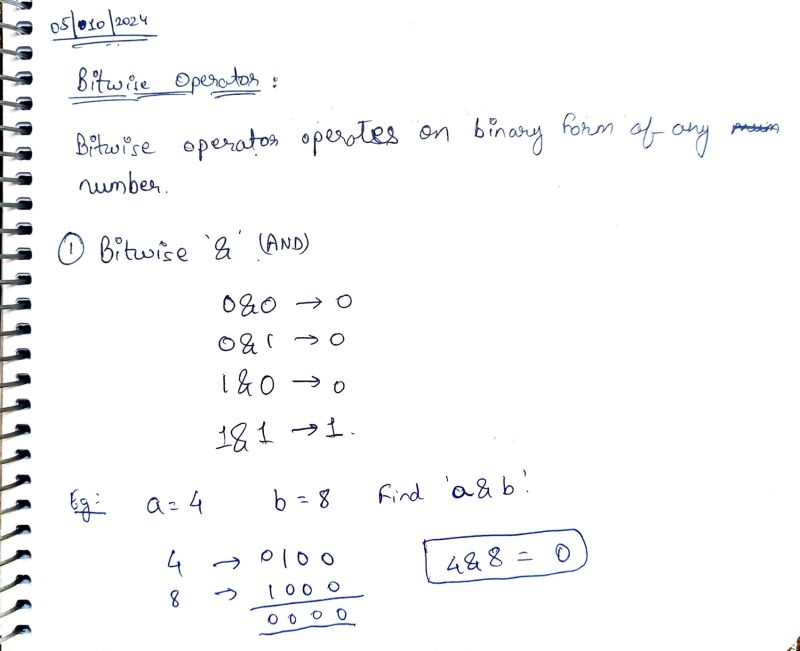 05/010/2024
Bitwise Operator :
Bitwise operator operates on binary form of any
number.
① Bitwise '&' (AND)
0&0 → 0
0&1 → 0
1&0 → 0
1&1 → 1.
Eg: a = 4 b = 8 Find 'a & b'.
4 → 0100
8 → 1000
0000
4&8 = 0